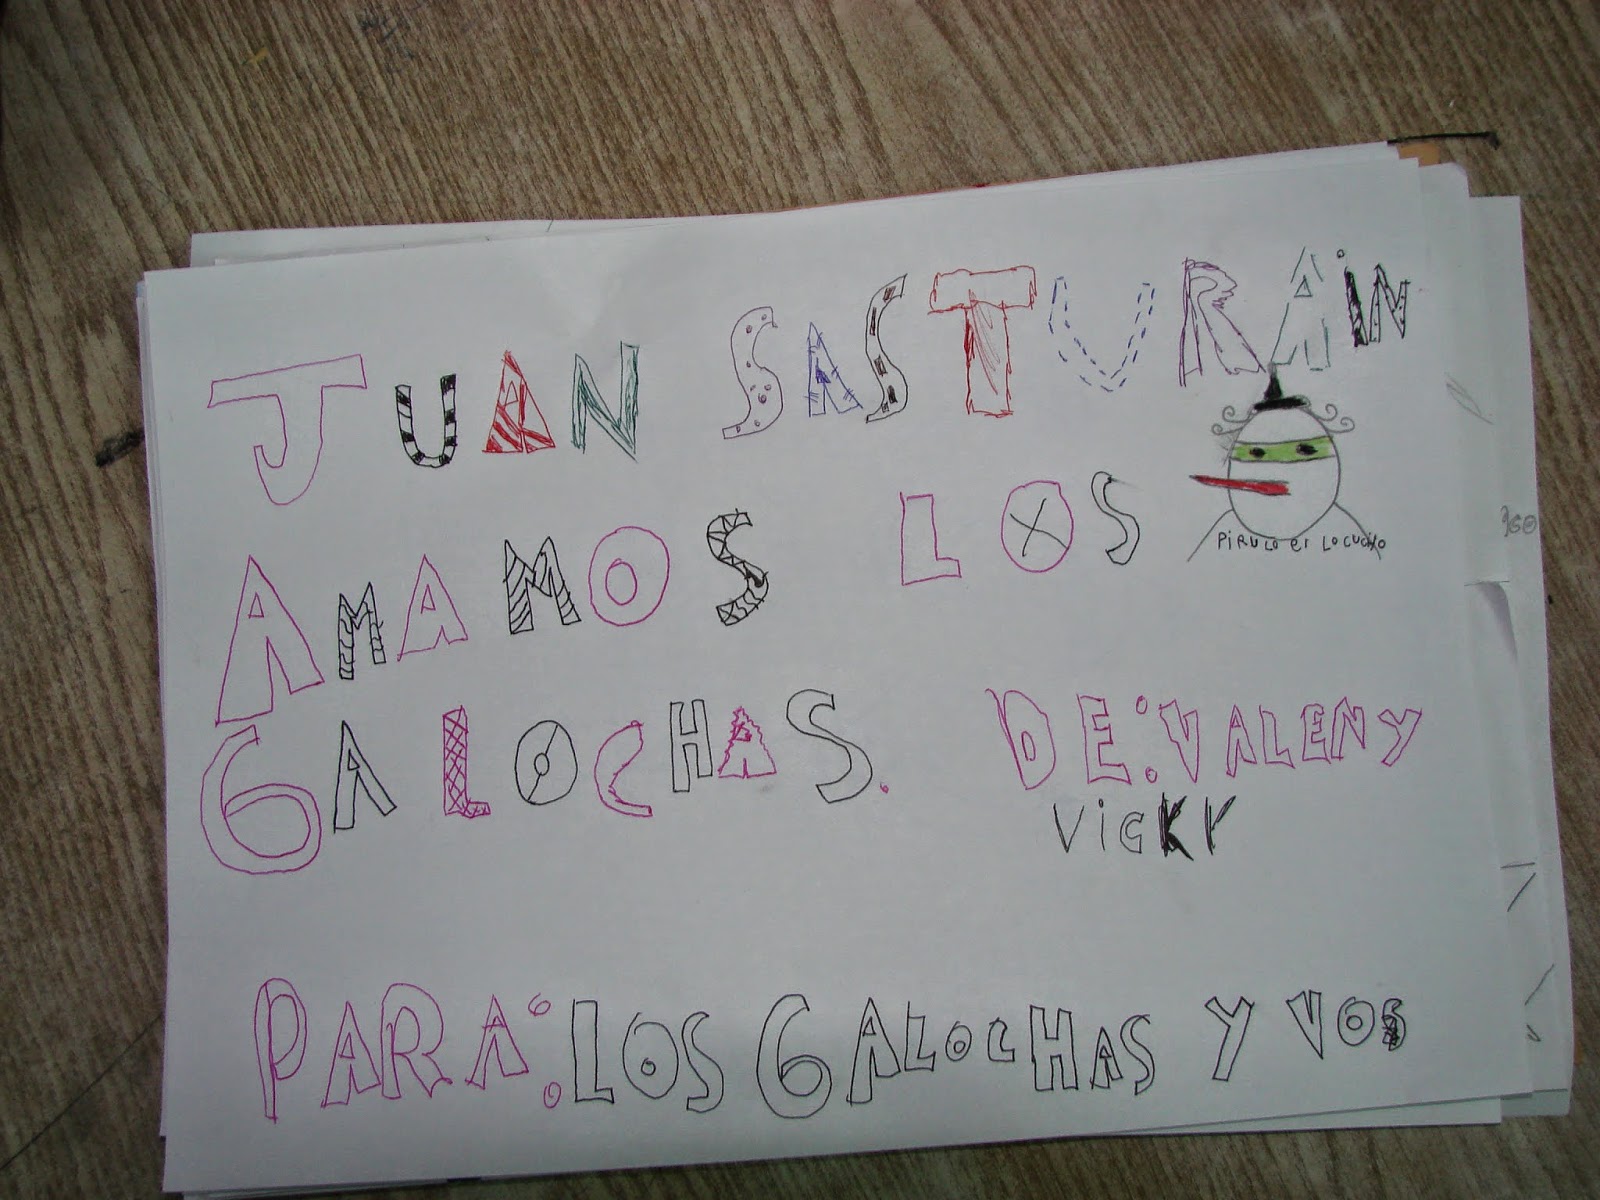 JUAN SASTURAIN
AMAMOS LOS
GALOCHAS. DE: VALEN Y
VICKY
PARA: LOS GALOCHAS Y VOS